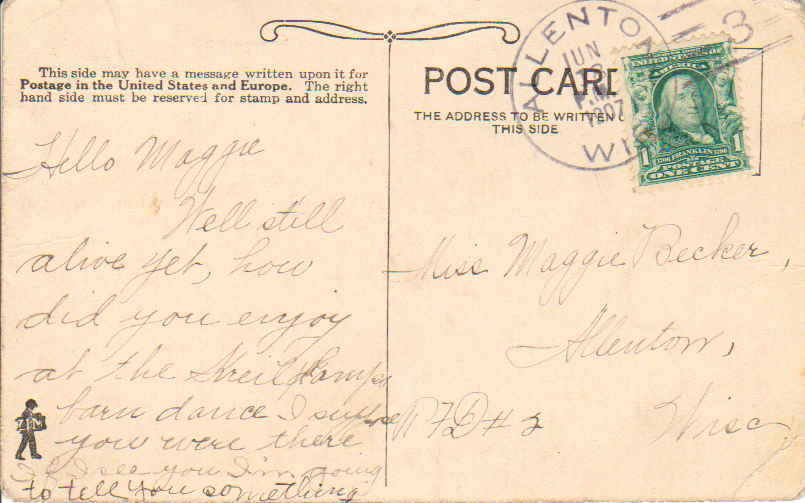 This side may have a message written upon it for
Postage in the United States and Europe. The right
hand side must be reserved for stamp and address.
POST CARD
THE ADDRESS TO BE WRITTEN
THIS SIDE
ALLENTON
JUN
P.M.
1907
WIS
3
UNITED STATES OF
AMERICA
1706 FRANKLIN 1790
1 POSTAGE 1
ONE CENT
Hello Maggie
Well still
alive yet, how
did you enjoy
at the
barn dance I suppose
you were there
I see you I'm going
to tell you something
ZIM
Miss Maggie Becker,
Allenton,
RFD # 2 Wisc